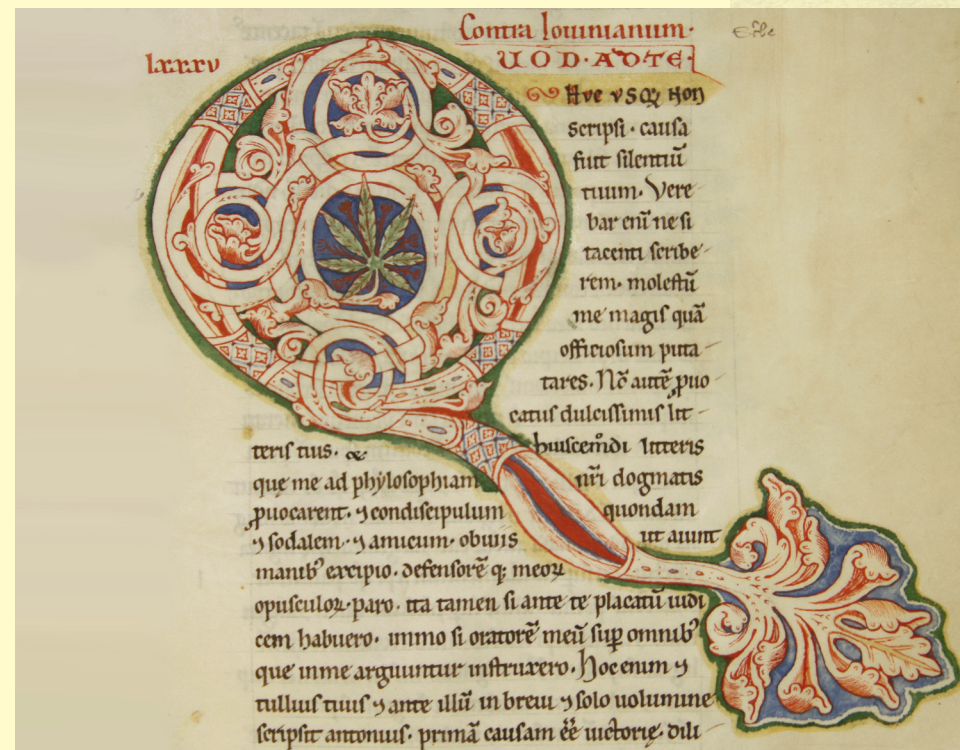 Contra Iouinianum·
lxxxv
UOD·AD·TE·
Aue vsq; non
scripsi· causa
fuit silentiū
tuum· Vere
bar eni͂ ne si
tacenti scribe
rem· molestū
me magis quā
officiosum puta
tares· Nō autē ꝓuo
catus dulcissimis lit
teris tuis· &
huiscem̄di litteris
que me ad phylosophiam
nr̄i dogmatis
ꝓuocarent· ⁊ condiscipulum
quondam
⁊ sodalem· ⁊ amicum· obuiis
ut aiunt
manib' excipio· defensorē q; meoꝝ
opusculoꝝ· paro· ita tamen si ante te placatū iudi
cem habuero· immo si oratorē meū suꝑ omnib'
que in me arguuntur instruxero· Hoc enim ⁊
tullius tuus ⁊ ante illū in breui ⁊ solo uolumine
scripsit antonius· primā causam eē̄ uictorię· dili